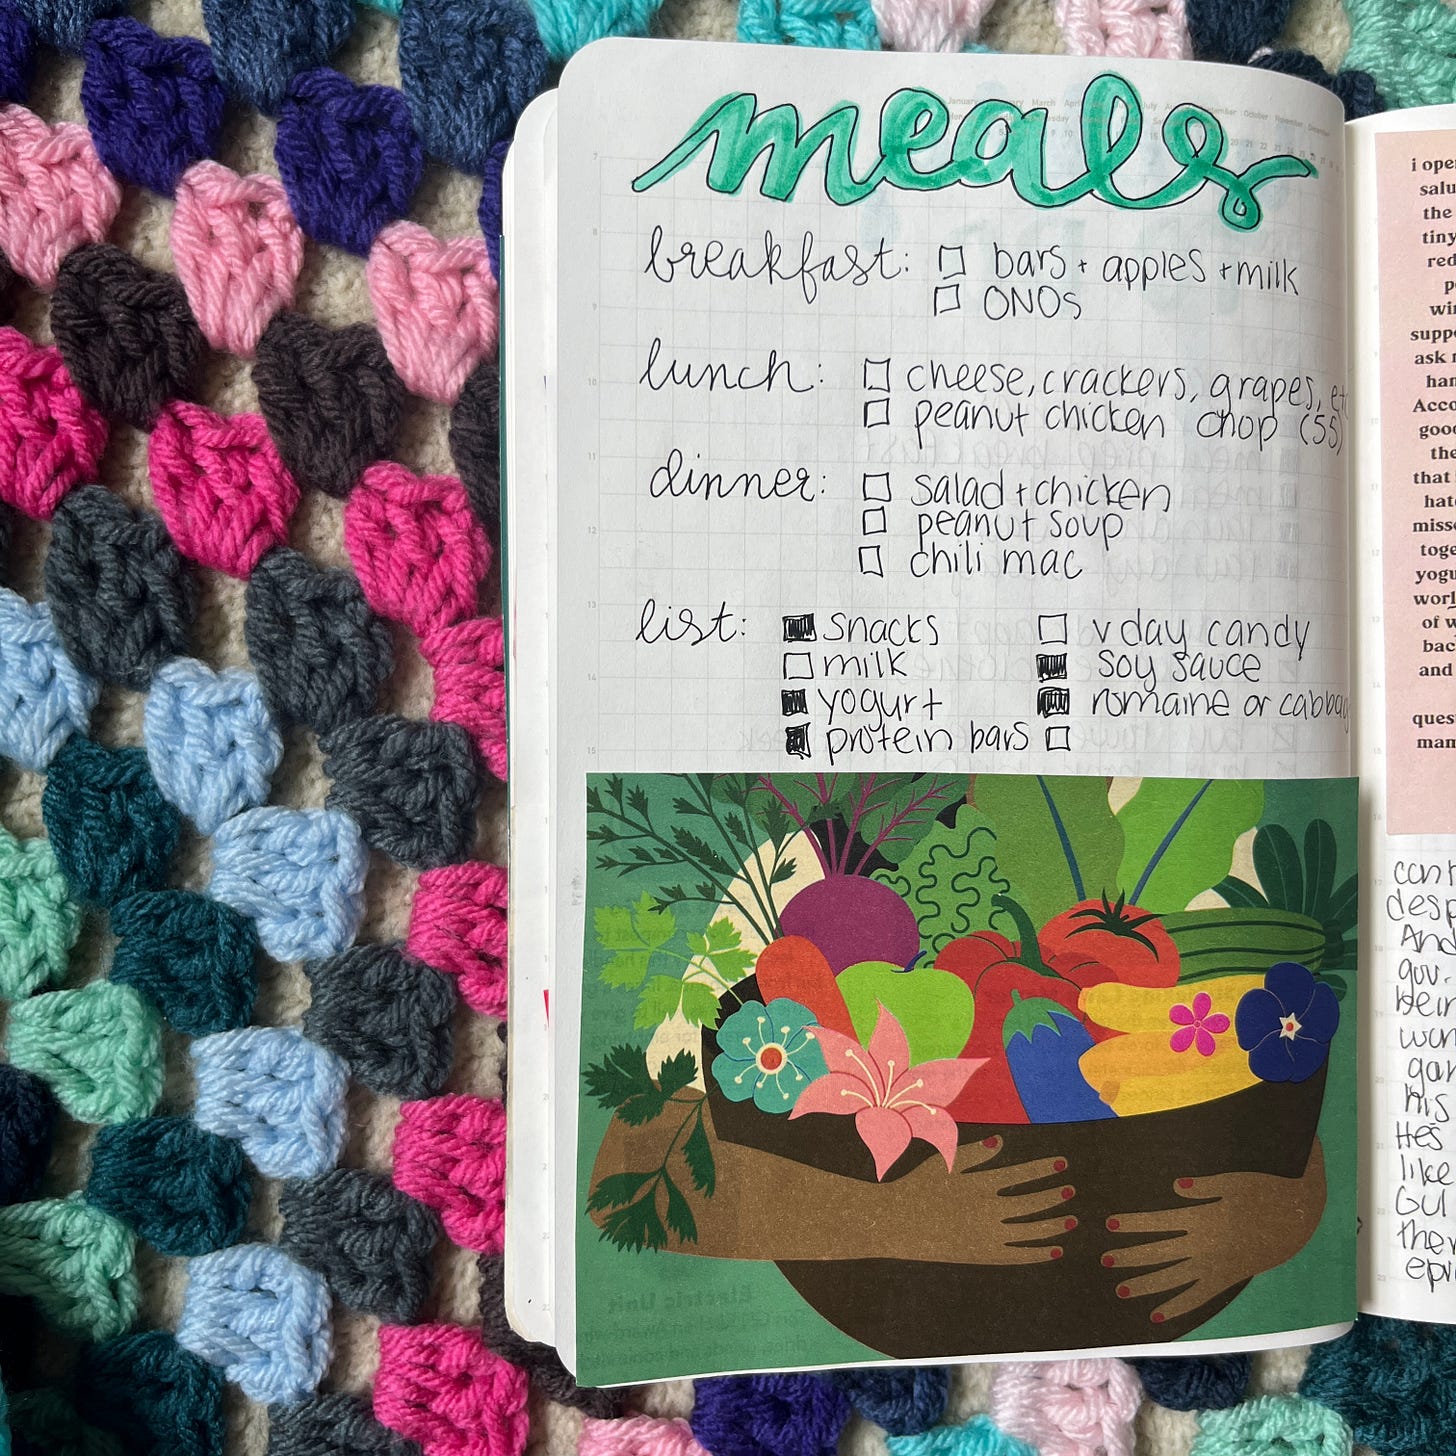 meals
breakfast: bars + apples + milk
ONOs
lunch: cheese, crackers, grapes, etc
peanut chicken chop (SS)
dinner: salad + chicken
peanut soup
chili mac
list: snacks v day candy
milk soy sauce
yogurt romaine or cabbag
protein bars
i ope
salu
the
tiny
red
p
wi
suppo
ask
han
Acco
good
the
that
hat
misse
toge
yogu
worl
of w
bac
and
ques
man
desp
And
gov
bein
wor
gar
his
He's
like
Gul
the
epi